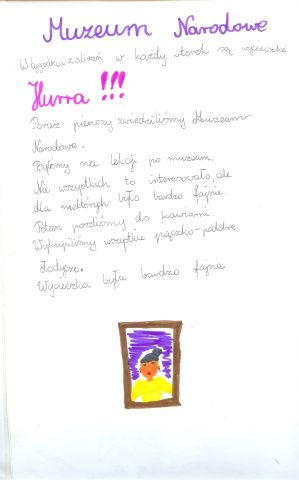 Muzeum Narodowe
W tygodniu zaliczeń w każdy wtorek są wycieczki
Hurra !!!
Poraz pierwszy zwiedziliśmy Muzeum
Narodowe.
Byliśmy na lekcji po muzeum.
Nie wszystkich to interesowało, ale
dla niektórych było bardzo fajnie.
Potem poszliśmy do kawiarni.
Wykupiliśmy wszystkie pączko-podobne
słodycze.
Wycieczka była bardzo fajna.